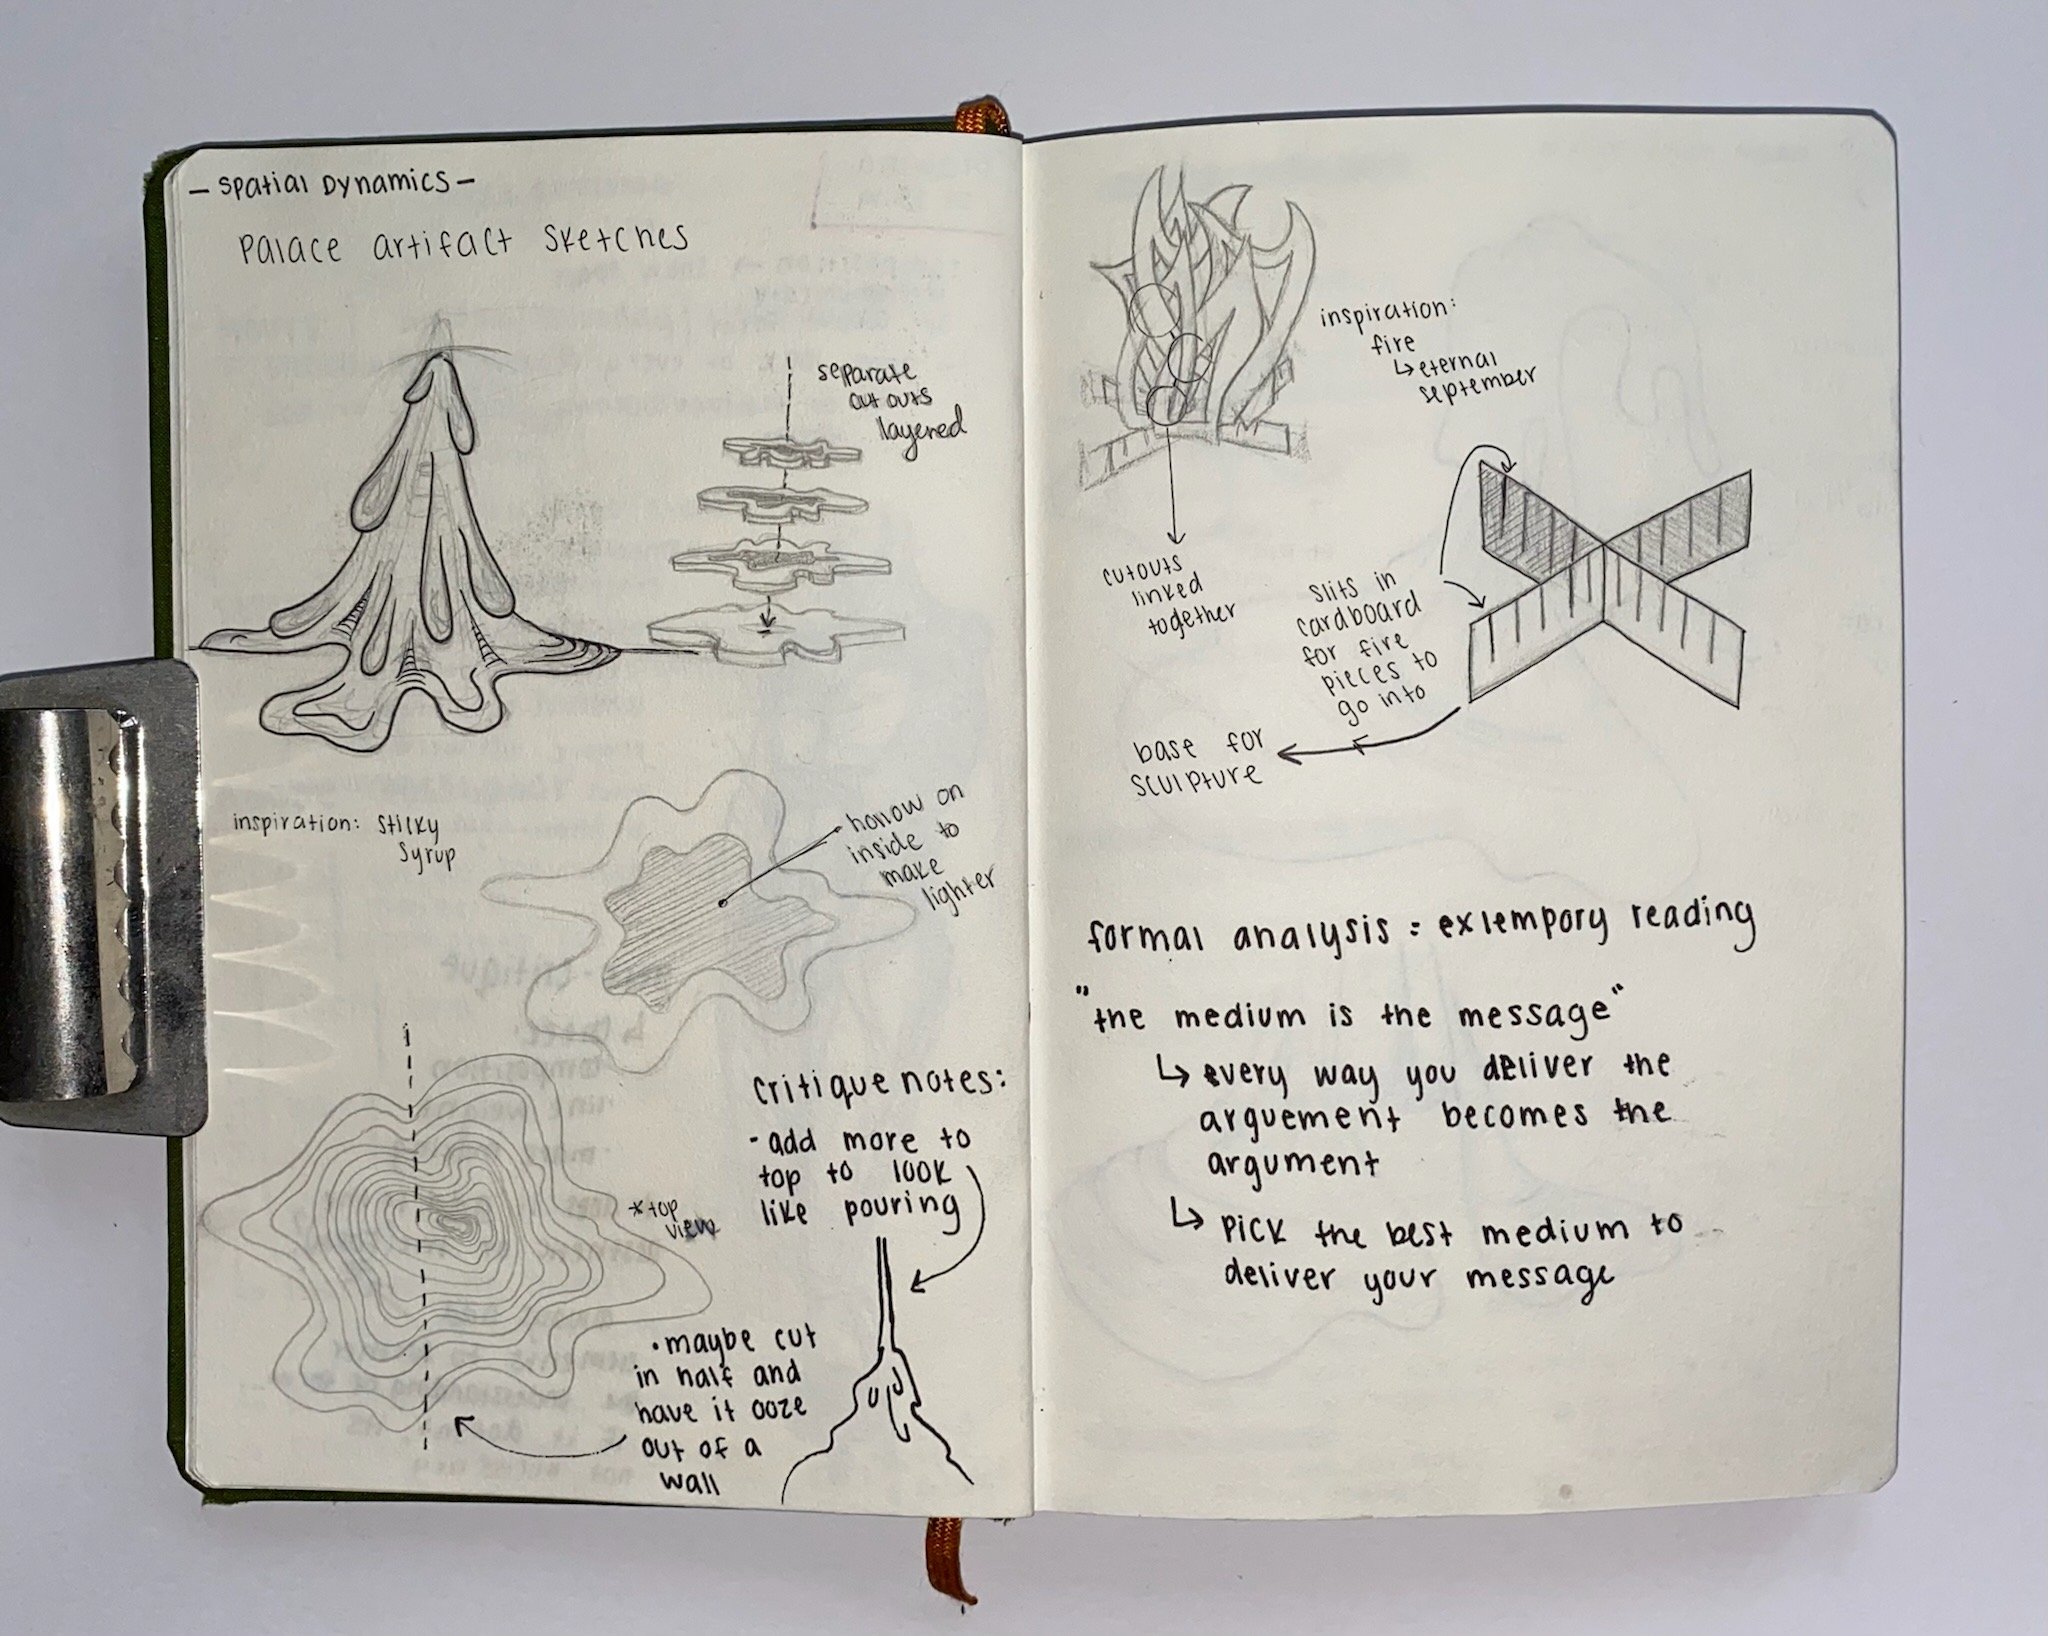 - Spatial Dynamics -
Palace artifact sketches
separate
cutouts
layered
inspiration: sticky
syrup
hollow on
inside to
make
lighter
* top
view
critique notes:
- add more to
top to look
like pouring
• maybe cut
in half and
have it ooze
out of a
wall
inspiration:
fire
↳ eternal
september
cutouts
linked
together
slits in
cardboard
for fire
pieces to
go into
base for
sculpture
formal analysis = extempory reading
"the medium is the message"
↳ every way you deliver the
arguement becomes the
argument
↳ pick the best medium to
deliver your message